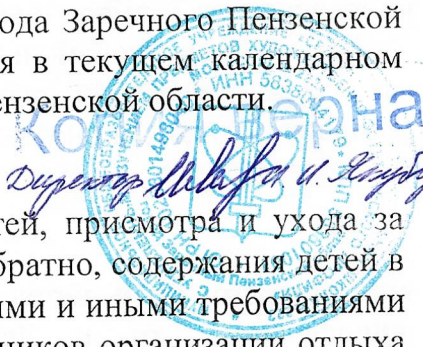 ода Заречного Пензенской
я в текущем календарном
ензенской области.
Копия верна
Директор
тей, присмотра и ухода за
братно, содержания детей в
ими и иными требованиями
ников организации отдыха